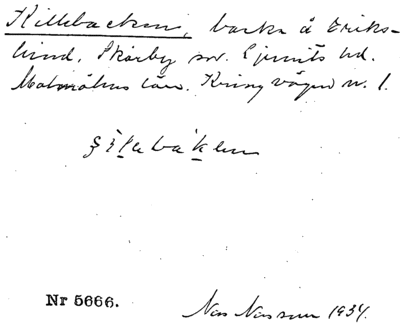 Killebacken, backe å Eriks-
lund, Skårby sn. Ljunits hd.
Malmöhus län. Kring vägen nr. 1.
Nr 5666.
1934.